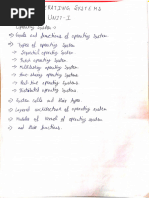 OPERATING SYSTEMS
UNIT-I
Operating System :-
⇒ Goals and functions of operating system
⇒ Types of operating system
→ Sequential operating system
→ Batch operating system
→ Multitasking operating system
→ Time sharing operating system
→ Real time operating systems
→ Distributed operating systems
⇒ System calls and their types
⇒ Layered architecture of operating system
⇒ Modules of kernel of operating system
⇒ and their functions